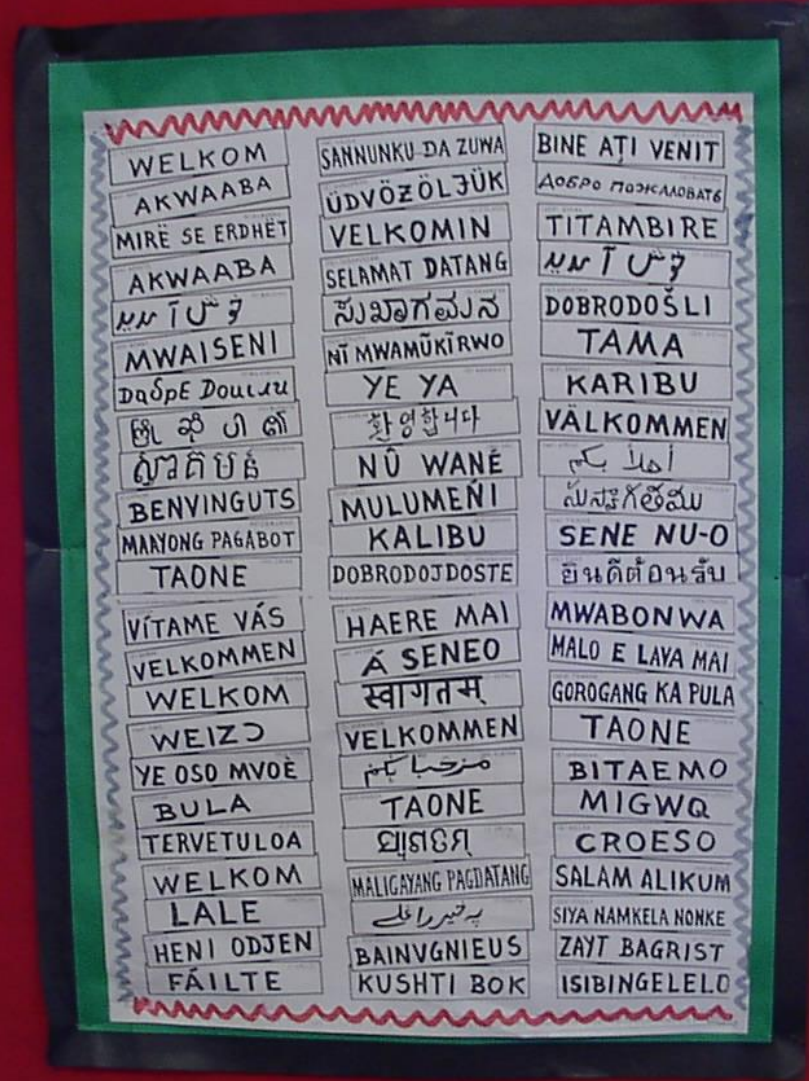 WELKOM
AKWAABA
MIRË SE ERDHËT
AKWAABA
MWAISENI
ДаδрЕ Дошли
BENVINGUTS
MAAYONG PAGABOT
TAONE
VÍTAME VÁS
VELKOMMEN
WELKOM
WEIZƆ
YE OSO MVOÈ
BULA
TERVETULOA
WELKOM
LALE
HENI ODJEN
FÁILTE
SANNUNKU DA ZUWA
ÜDVÖZÖLJÜK
VELKOMIN
SELAMAT DATANG
ಸುಖಾಗಮನ
NĪ MWAMŪKĪRWO
YE YA
환영합니다
NÛ WANÉ
MULUMEŃI
KALIBU
DOBRODOJDOSTE
HAERE MAI
Á SENEO
स्वागतम्
VELKOMMEN
مرحبا بكم
TAONE
ସ୍ୱାଗତମ୍
MALIGAYANG PAGDATANG
په خير راغلے
BAINVGNIEUS
KUSHTI BOK
BINE AȚI VENIT
ДОБРО ПОЖАЛОВАТЬ
TITAMBIRE
DOBRODOŠLI
TAMA
KARIBU
VÄLKOMMEN
أهلاً بكم
SENE NU-O
ยินดีต้อนรับ
MWABONWA
MALO E LAVA MAI
GOROGANG KA PULA
TAONE
BITAEMO
MIGWQ
CROESO
SALAM ALIKUM
SIYA NAMKELA NONKE
ZAYT BAGRIST
ISIBINGELELO